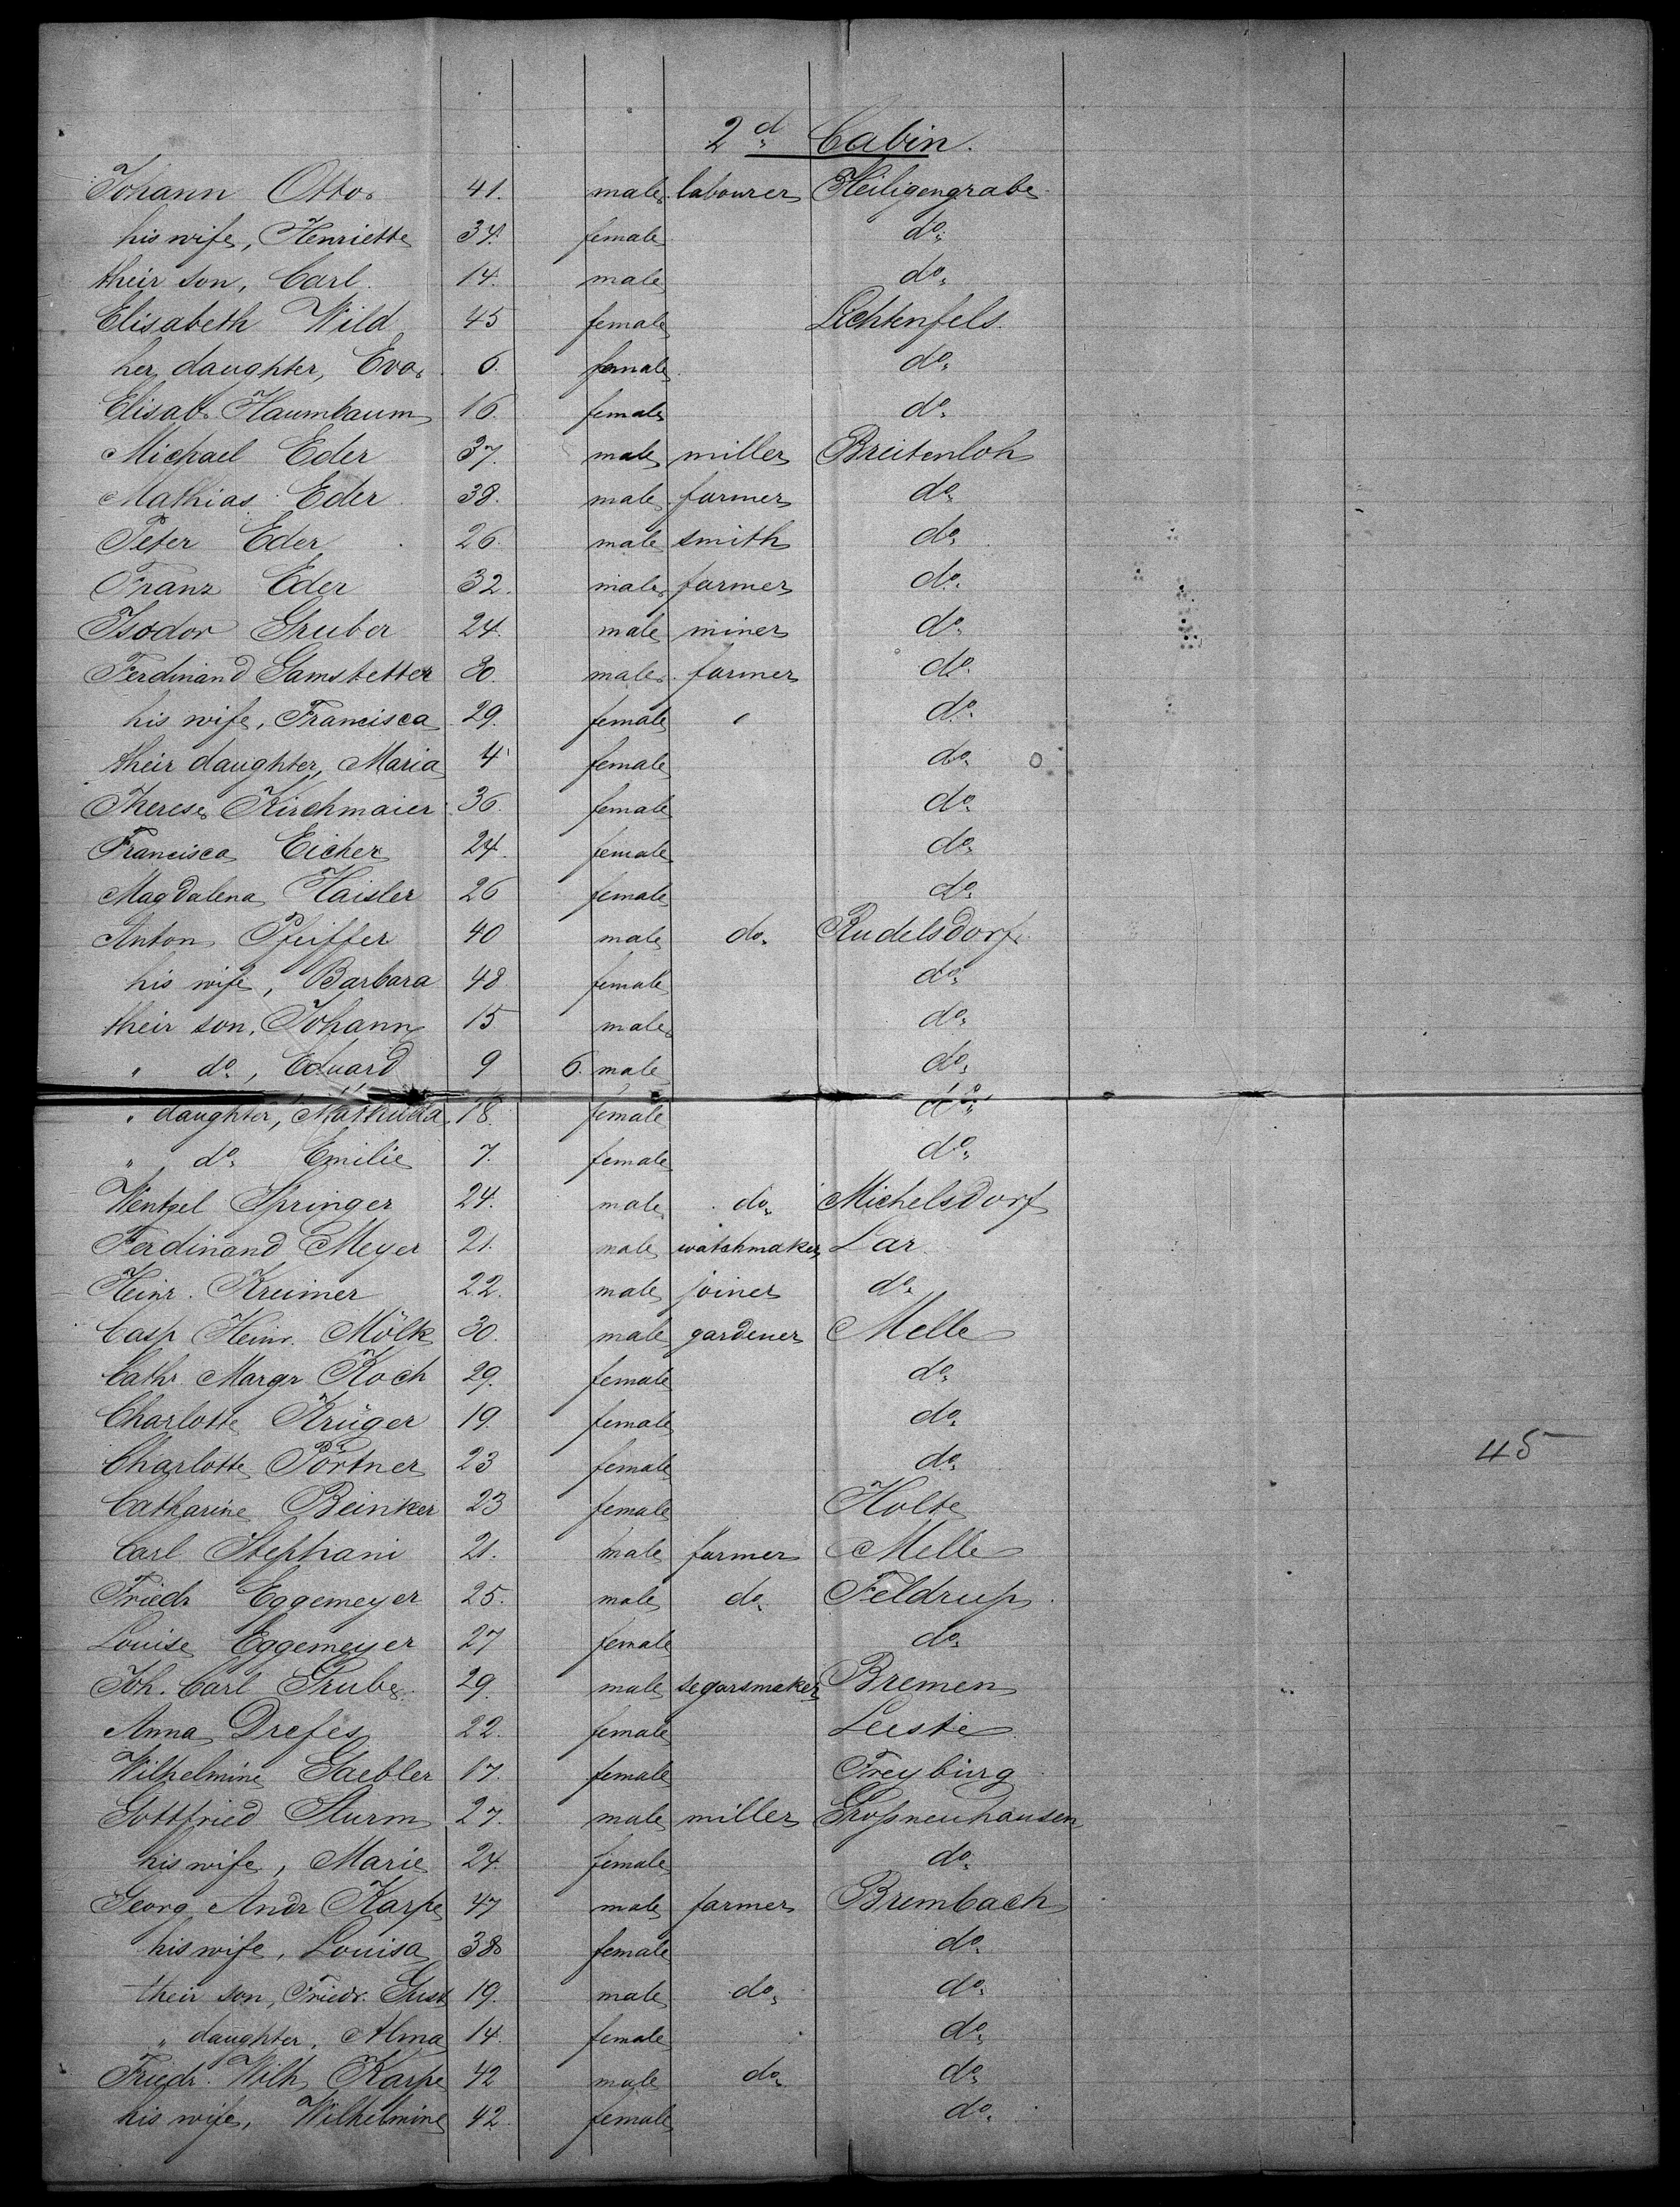 2d Cabin.
Johann Otto 41. male labourer Heiligengrabe
his wife, Henriette 34. female do.
their son, Carl. 14. male do.
Elisabeth Wild 45 female Lichtenfels.
her daughter, Eva 6. female do.
Elisab. Haumbaum 16. female do.
Michael Eder 37. male miller Breitenloh
Mathias Eder 38. male farmer do.
Peter Eder 26. male smith do.
Franz Eder 32. male farmer do.
Isodor Gruber 24. male miner do.
Ferdinand Gamstetter 30. male farmer do.
his wife, Francisca 29. female do.
their daughter, Maria 4 female do.
Therese Kirchmaier 36. female do.
Francisca Eicher 24. female do.
Magdalena Haisler 26 female do.
Anton Pfeiffer 40 male do. Rudelsdorf
his wife, Barbara 48 female do.
their son, Johann 15 male do.
" do., Eduard 9 6. male do.
" daughter, Mathilda 18. female do.
" do. Emilie 7. female do.
Wentzel Springer 24. male do. Michelsdorf
Ferdinand Meyer 21. male watchmaker Lar
Heinr. Kreimer 22. male joiner do.
Casp Heinr. Mölk 30. male gardener Melle
Cathr Margr Koch 29. female do.
Charlotte Krüger 19. female do.
Charlotte Pörtner 23 female do.
45
Catharine Beinker 23 female Holte
Carl Stephani 21. male farmer Melle
Friedr Eggemeyer 25. male do. Feldrup
Louise Eggemeyer 27 female do.
Joh. Carl Grube 29. male segarsmaker Bremen
Anna Drefes 22. female Leeste
Wilhelmine Gaebler 17. female Freyburg
Gottfried Sturm 27. male miller Großneuhausen
his wife, Marie 24. female do.
Georg Andr Karpe 47 male farmer Brembach
his wife, Louisa 38 female do.
their son, Friedr. Gust 19. male do. do.
" daughter, Alma 14. female do.
Friedr. Wilh Karpe 42 male do. do.
his wife, Wilhelmine 42. female do.